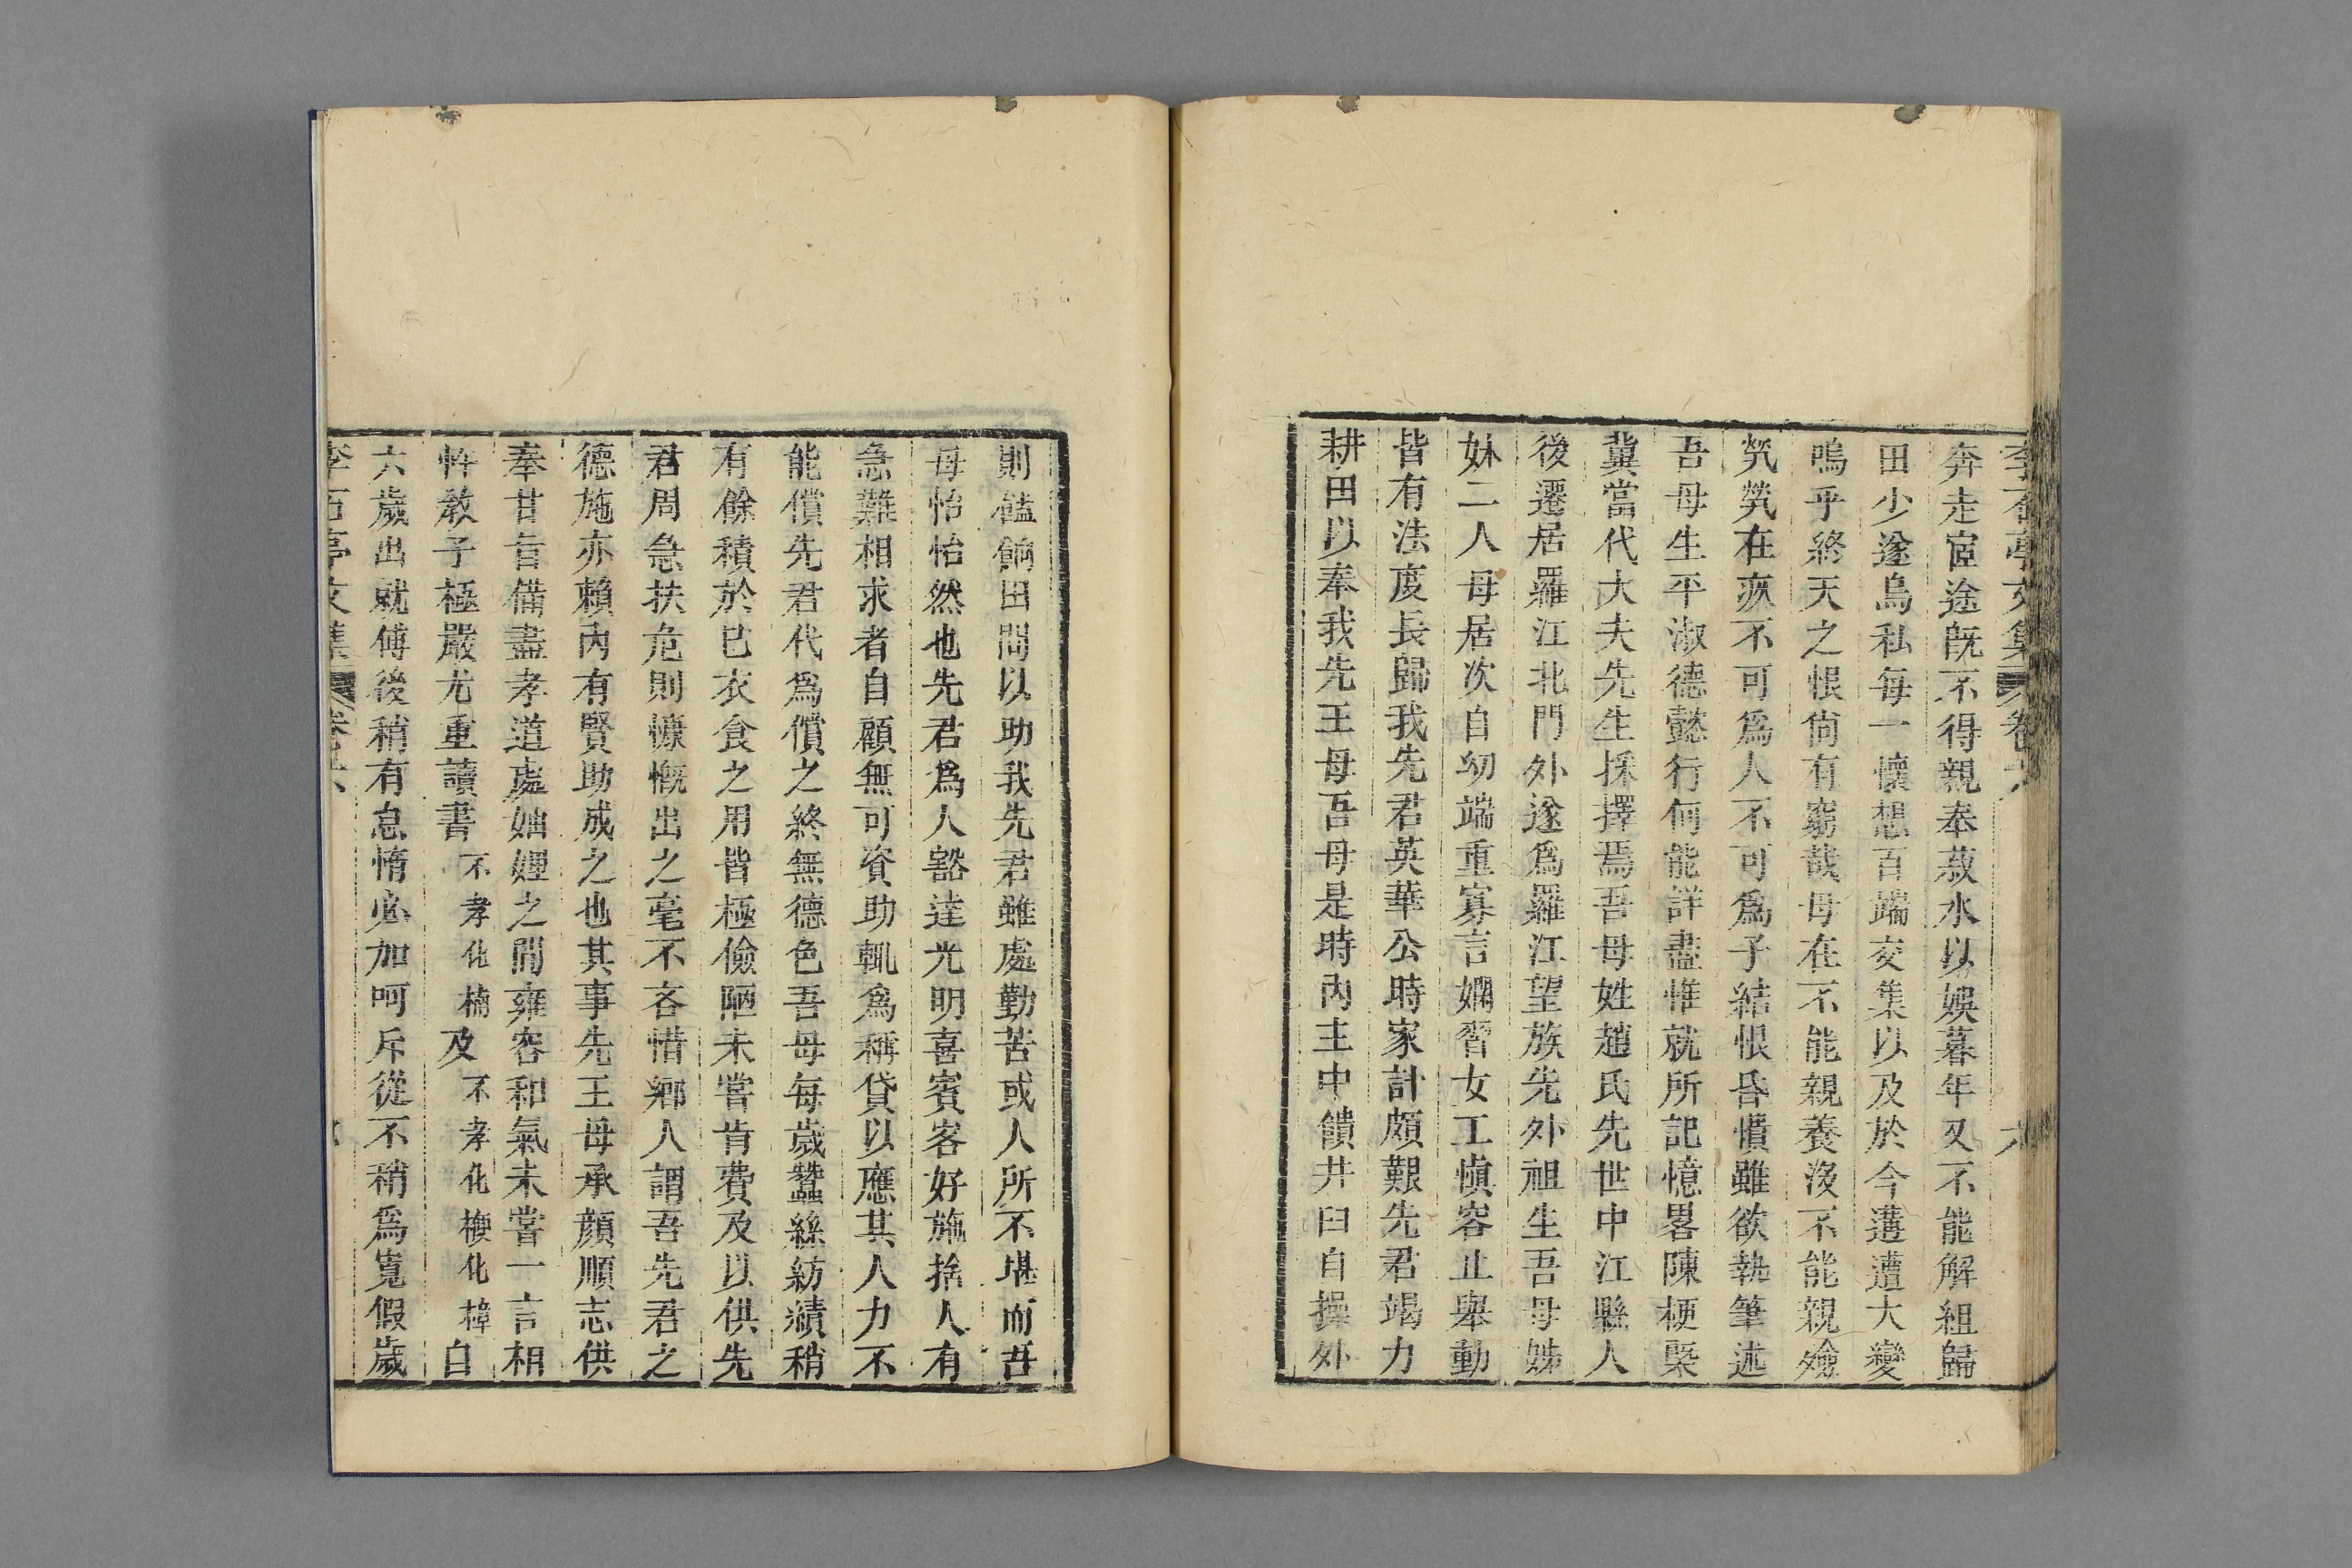 李石亭文集 卷六 六
奔走宦途既不得親奉菽水以娛暮年又不能解組歸
田少遂烏私每一懷想百端交集以及於今遘遭大變
嗚乎終天之恨尚有窮哉母在不能親養沒不能親殮
煢煢在疚不可為人不可為子結恨昏憒雖欲執筆述
吾母生平淑德懿行何能詳盡惟就所記憶畧陳梗槩
冀當代大夫先生採擇焉吾母姓趙氏先世中江縣人
後遷居羅江北門外遂為羅江望族先外祖生吾母姊
妹二人母居次自幼端重寡言嫻習女工愼容止舉動
皆有法度長歸我先君英華公時家計頗艱先君竭力
耕田以奉我先王母吾母是時內主中饋井臼自操外
則饁餉田間以助我先君雖處勤苦或人所不堪而吾
母怡怡然也先君為人豁達光明喜賓客好施捨人有
急難相求者自顧無可資助輒為稱貸以應其人力不
能償先君代為償之終無德色吾母每歲蠶絲紡績稍
有餘積於己衣食之用皆極儉陋未嘗肯費及以供先
君周急扶危則慷慨出之毫不吝惜鄉人謂吾先君之
德施亦賴內有賢助成之也其事先王母承顏順志供
奉甘旨備盡孝道處妯娌之間雍容和氣未嘗一言相
忤敎子極嚴尤重讀書不孝化楠及不孝化楩化樟自
六歲出就傅後稍有怠惰必加呵斥從不稍為寬假歲
李石亭文集 卷六